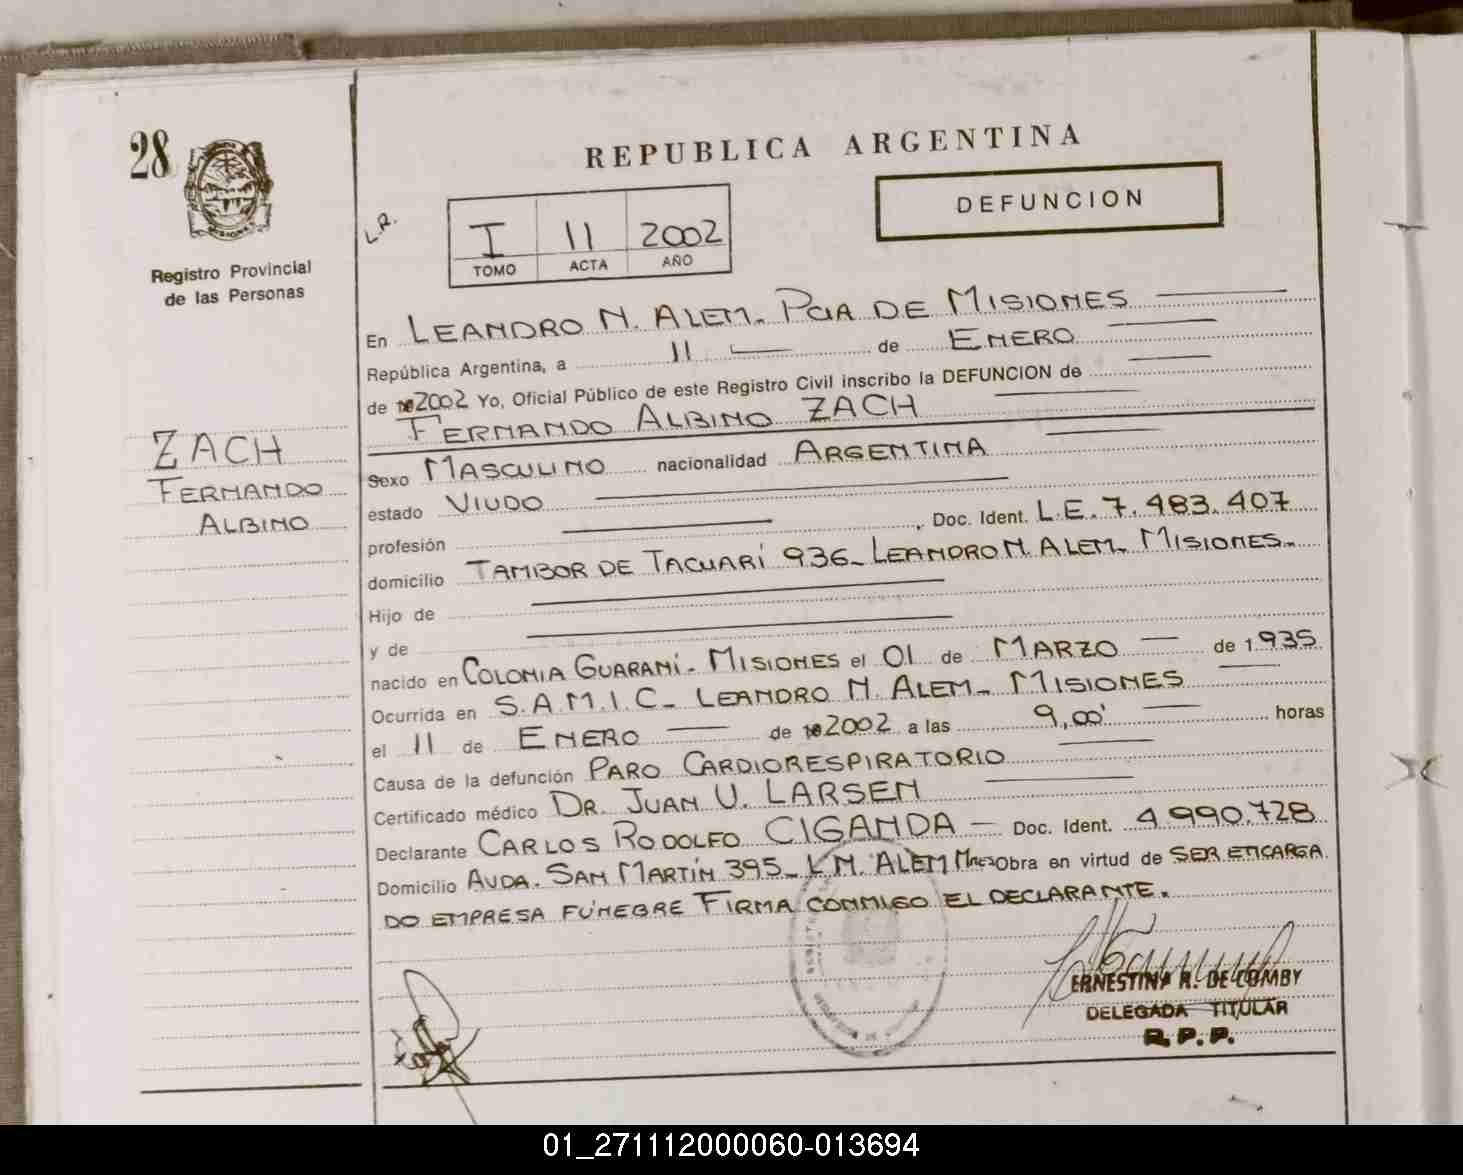 28
REPUBLICA ARGENTINA
DEFUNCION
L.R.
I 11 2002
TOMO ACTA AÑO
Registro Provincial
de las Personas
MISIONES
En LEANDRO N. ALEM. PCIA DE MISIONES
República Argentina, a 11 de ENERO
de 2002 Yo, Oficial Público de este Registro Civil inscribo la DEFUNCION de
FERNANDO ALBINO ZACH
ZACH
FERNANDO
ALBINO
Sexo MASCULINO nacionalidad ARGENTINA
estado VIUDO
profesión , Doc. Ident. L.E. 7.483.407
domicilio TAMBOR DE TACUARÍ 936_ LEANDRO N. ALEM_ MISIONES_
Hijo de
y de
nacido en COLONIA GUARANÍ- MISIONES el 01 de MARZO de 1.935
Ocurrida en S.A.M.I.C_ LEANDRO N. ALEM_ MISIONES
el 11 de ENERO de 2002 a las 9,00' horas
Causa de la defunción PARO CARDIORESPIRATORIO
Certificado médico DR. JUAN U. LARSEN
Declarante CARLOS RODOLFO CIGANDA — Doc. Ident. 4.990.728
Domicilio AVDA. SAN MARTÍN 395_ L.N. ALEM Mnes Obra en virtud de SER ENCARGA
DO EMPRESA FÚNEBRE FIRMA CONMIGO EL DECLARANTE.
ERNESTINA R. DE COMBY
DELEGADA TITULAR
R.P.P.
01_271112000060-013694